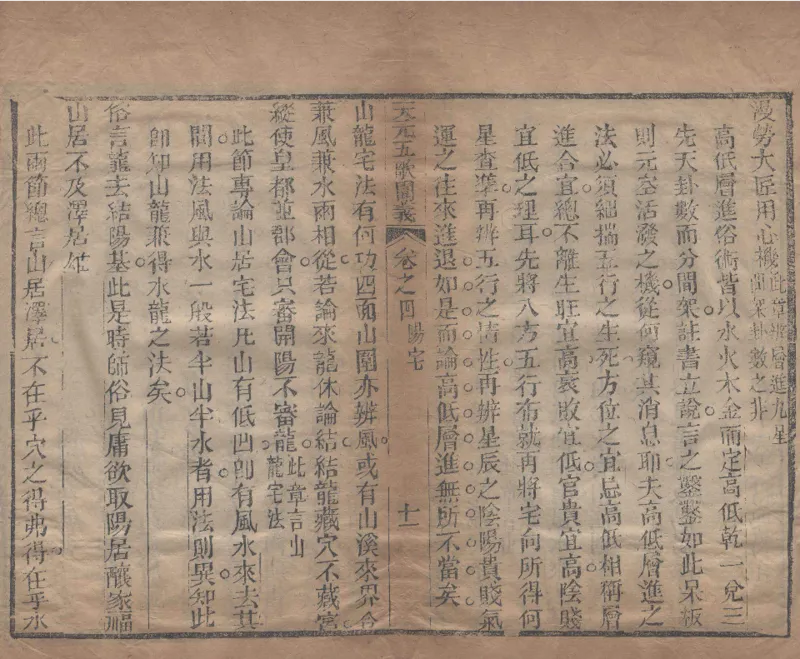 漫勞大匠用心機此章辨層進九星
間架卦數之非
高低層進俗術皆以水火木金而定高低乾一兌三
先天卦數而分間架註書立說言之鑿鑿如此呆板
則元空活發之機從何窺其消息耶夫高低層進之
法必須細揣五行之生死方位之宜忌高低相稱層
進合宜總不離生旺宜高衰敗宜低官貴宜高陰賤
宜低之理耳先將八方五行布就再將宅向所得何
星查準再辨五行之情性再辨星辰之陰陽貴賤氣
運之往來進退如是而論高低層進無所不當矣
天元五歌圖義 卷之四 陽宅 十一
山龍宅法有何功四面山圍亦辨風或有山溪來界合
兼風兼水兩相從若論來龍休論結結龍藏穴不藏宮
縱使皇都並郡會只審開陽不審龍此章言山
龍宅法
此節專論山居宅法凡山有低凹卽有風水來去其
間用法風與水一般若半山半水者用法則異知此
卽知山龍兼得水龍之法矣
俗言龍去結陽基此是時師俗見庸欲取陽居釀家福
山居不及澤居雄
此兩節總言山居澤居不在乎穴之得弗得在乎水